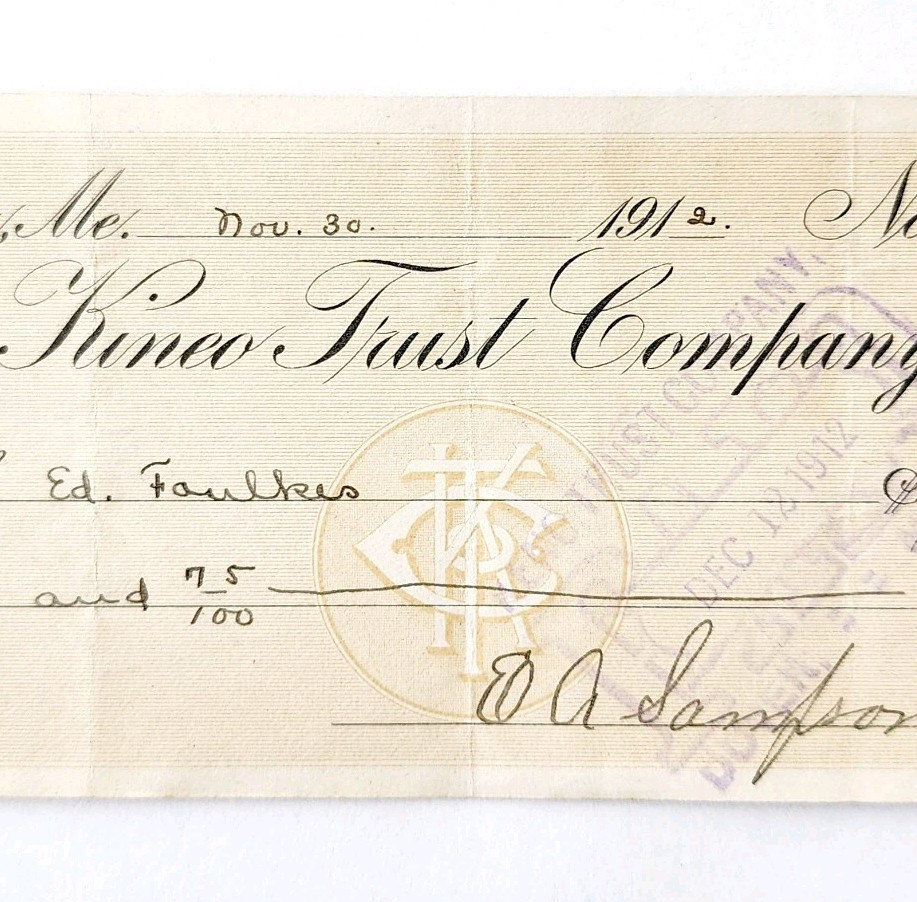 Me. Nov. 30. 1912. No
Kineo Trust Company
Ed. Faulkes $
and 75/100
E A Sampson
TRUST COMPANY,
PAID
DEC 12 1912
DOVER, ME.
KTC